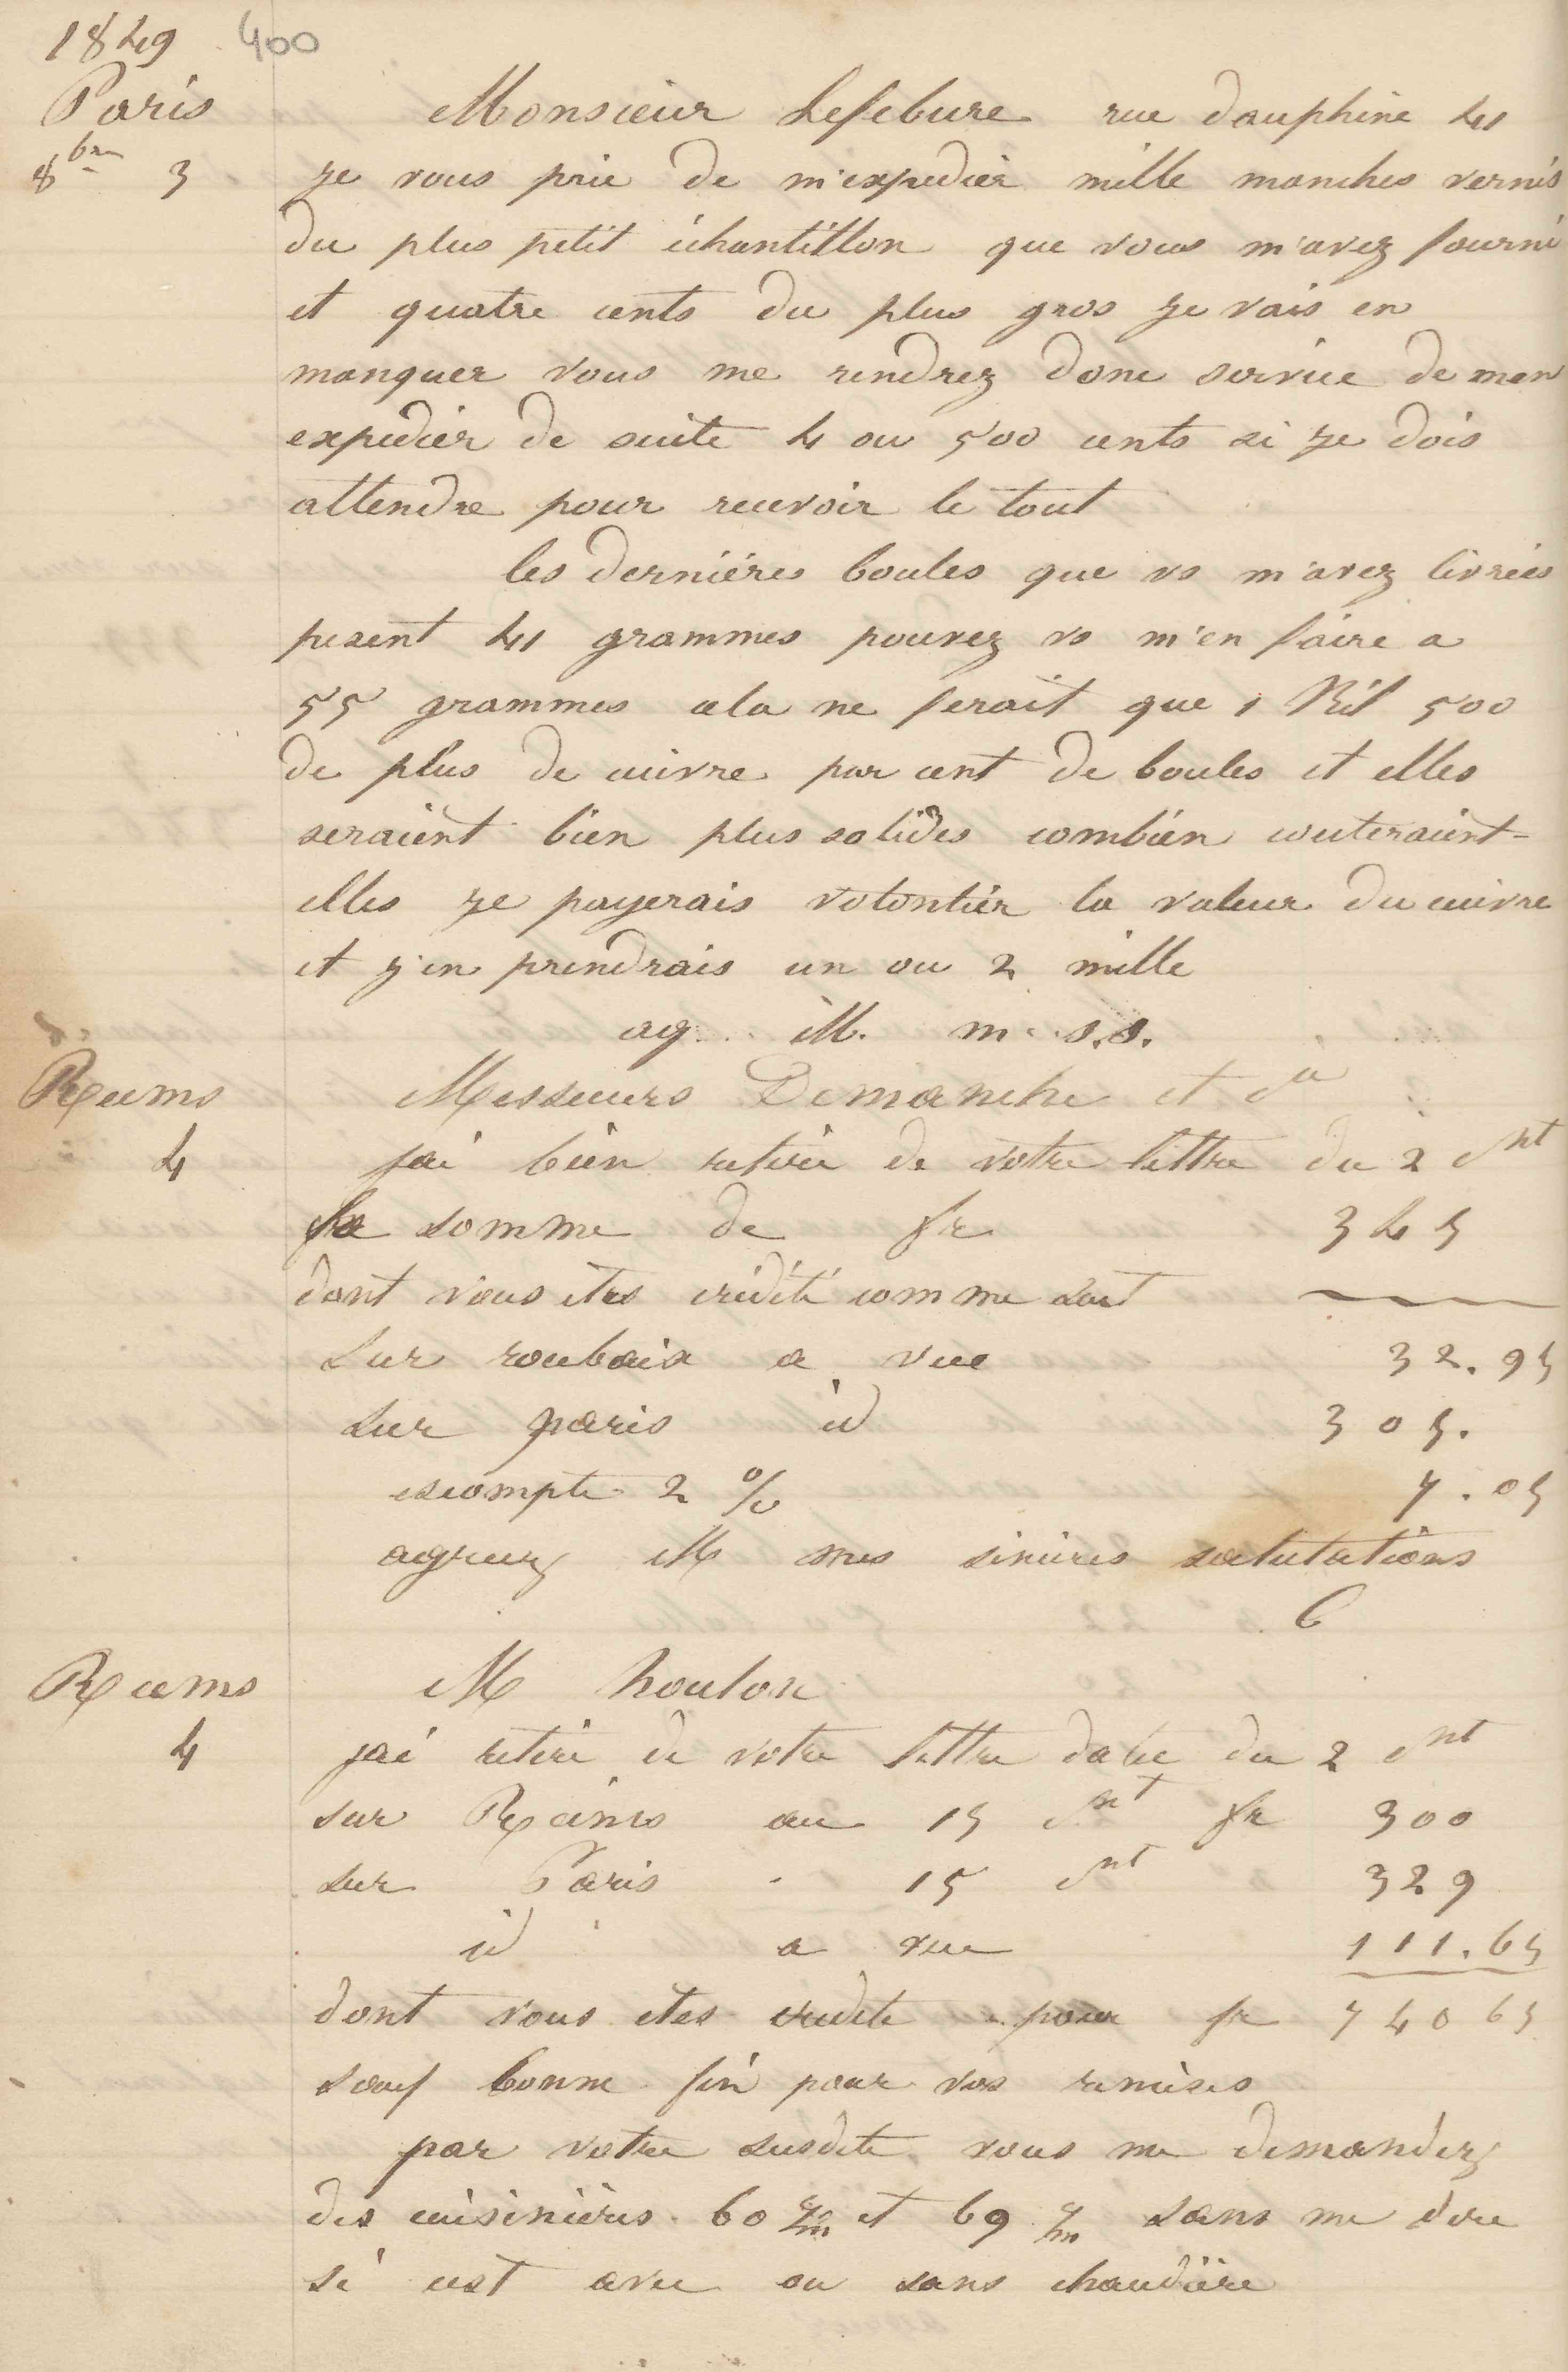 1849 400
Paris
8bre 3
Monsieur Lefebure rue dauphine 41
je vous prie de m'expedier mille manches vernis
du plus petit échantillon que vous m'avez fourni
et quatre cents du plus gros je vais en
manquer vous me rendrez donc service de men
expedier de suite 4 ou 500 cents si je dois
attendre pour recevoir le tout
les derniéres boules que vs m'avez livrées
pesent 41 grammes pouvez vs m'en faire a
55 grammes cela ne ferait que 1 Kil 500
de plus de cuivre par cent de boules et elles
seraient bien plus solides combien couteraient-
elles je payerais volontier la valeur du cuivre
et j'en prendrais un ou 2 mille
ag. M. m. s.s.
Reims
4
Messieurs Demanche et
jai bien retiré de votre lettre du 2 ct
la somme de fr 345
dont vous êtes crédité comme suit
sur roubaix a vue 32.95
sur paris id 305.
escompte 2 % 7.05
agreez M mes sincères salutations
G
Reims
4
M houlon
jai retiré de votre lettre datée du 2 ct
sur Reims au 15 ct fr 300
sur Paris - 15 ct 329
id a vue 111.65
dont vous etes credité pour fr 740 65
sauf bonne fin pour vos remises
par votre susdite vous me demandez
des cuisinières 60 c/m et 69 c/m sans me dire
si cest avec ou sans chaudière